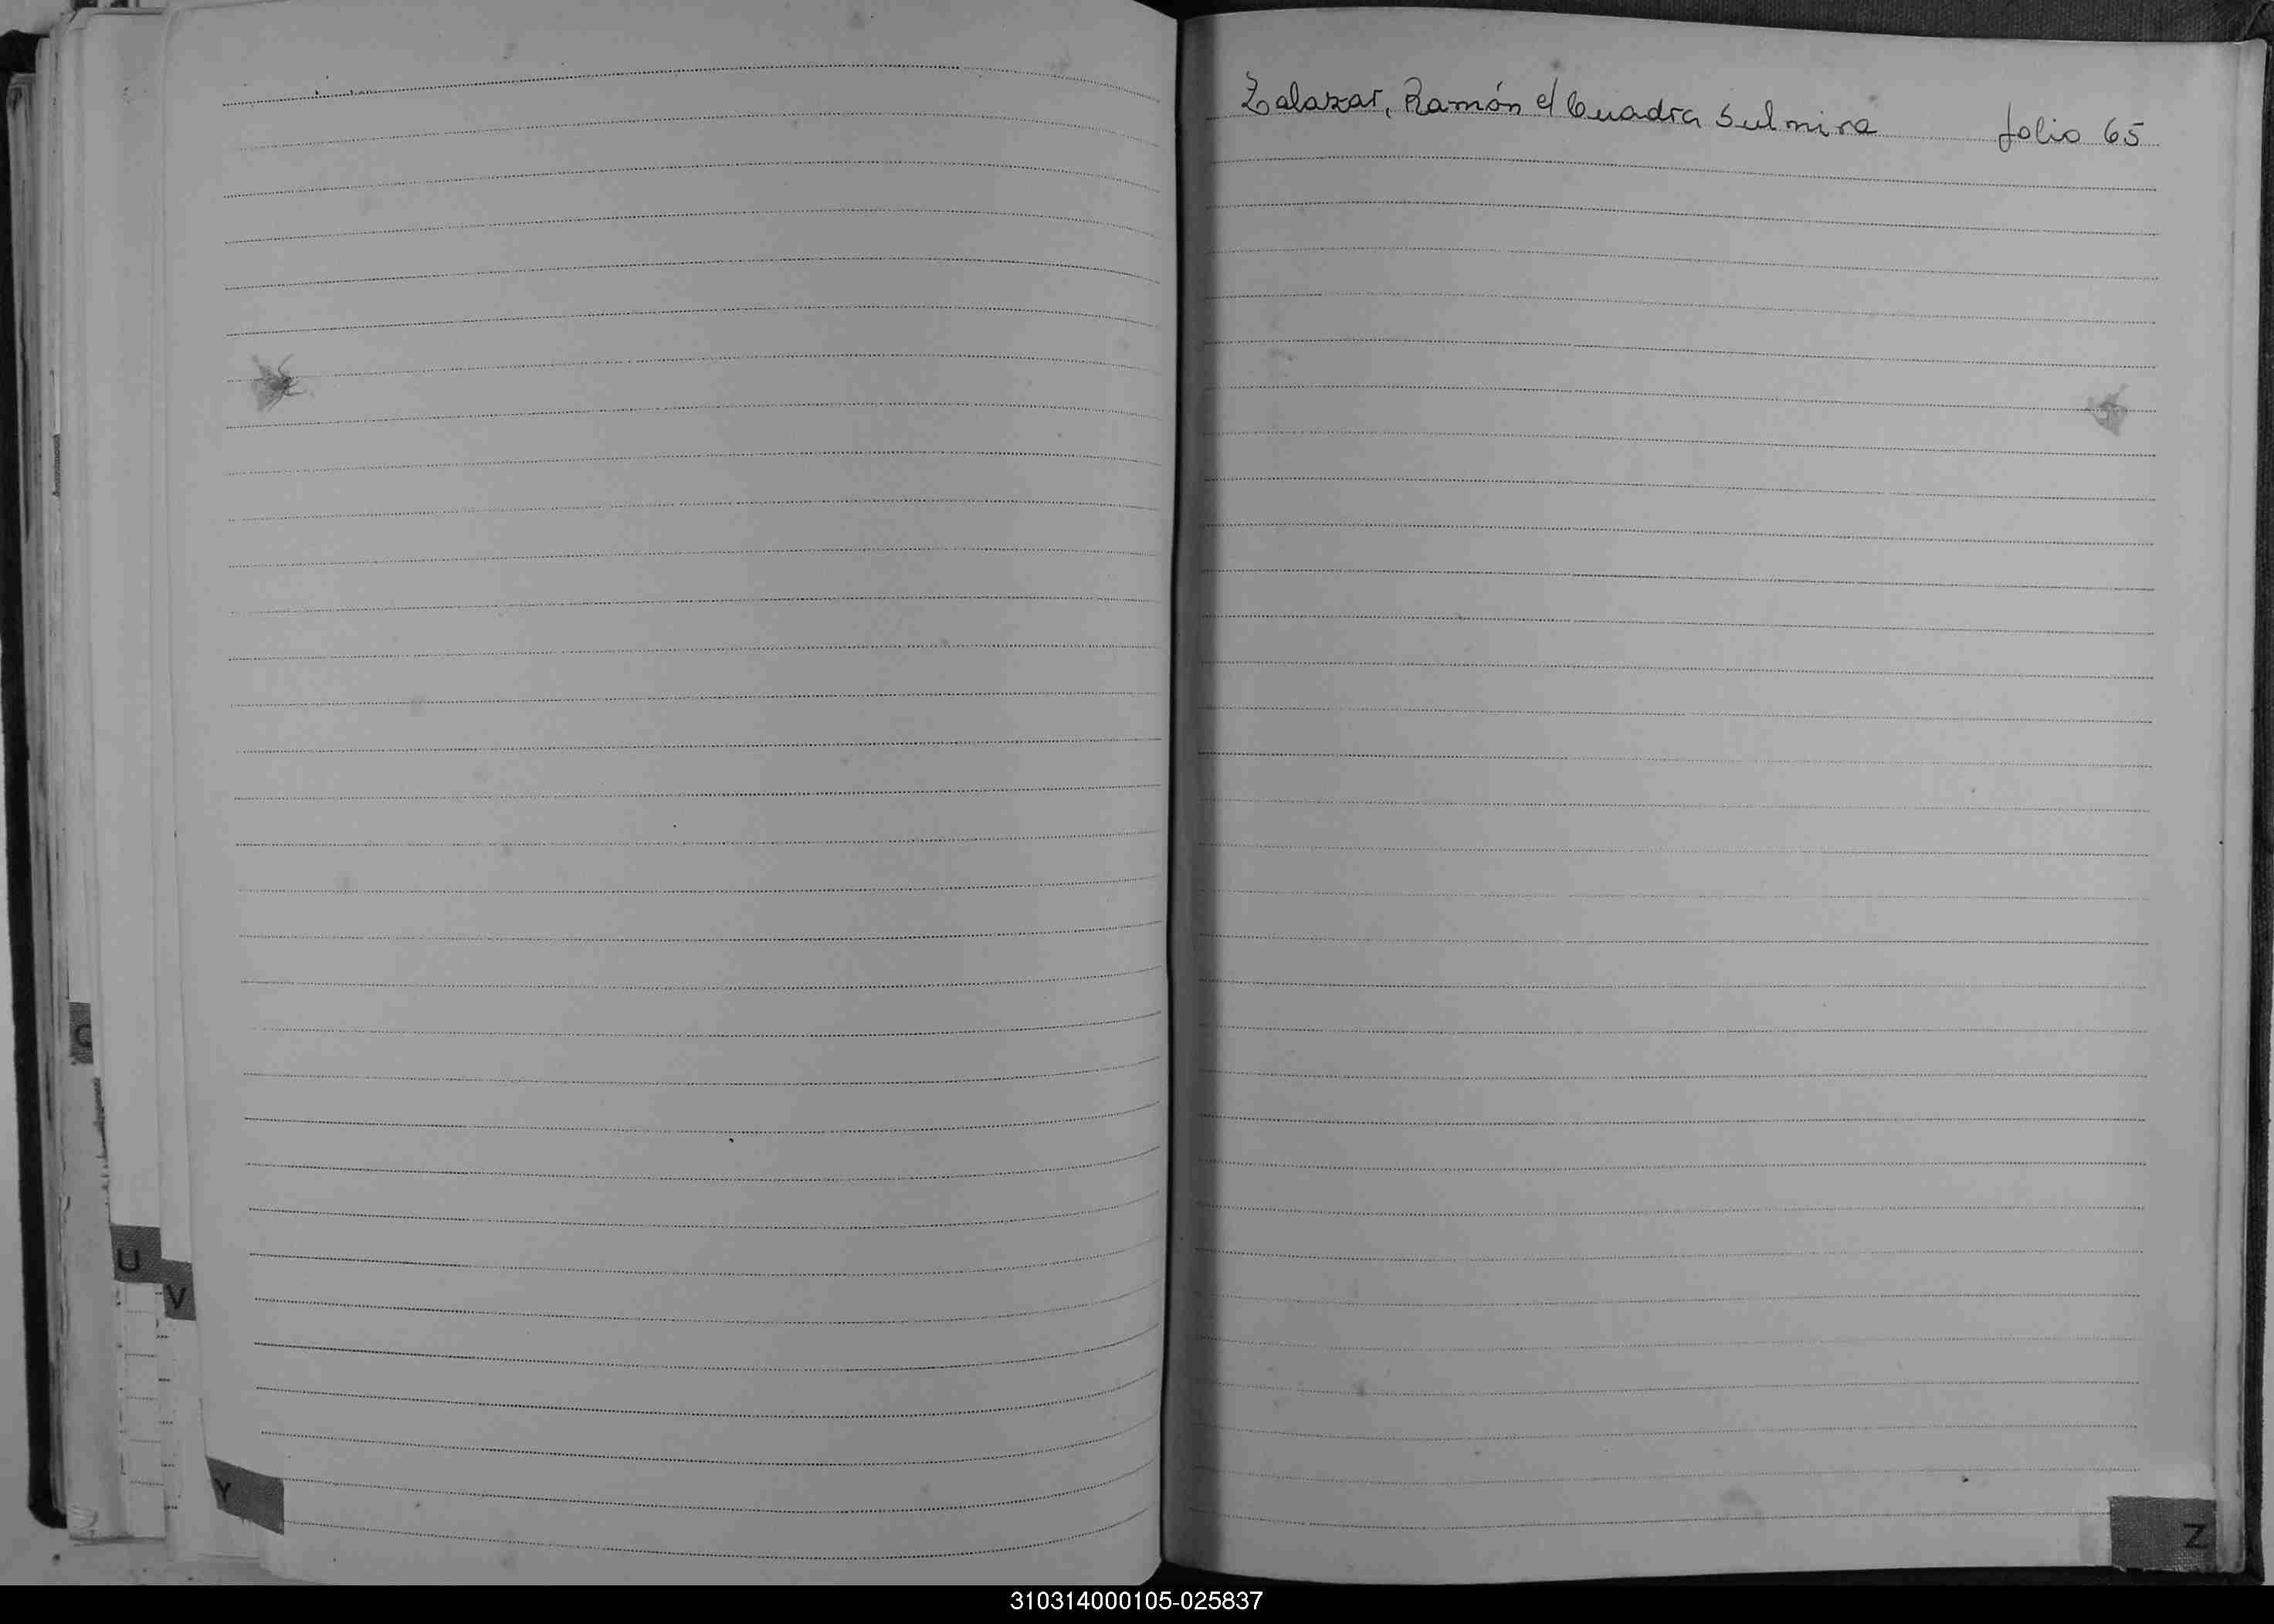 Zalazar, Ramón c/ Cuadra Sulmira folio 65
U
V
Y
Z
310314000105-025837